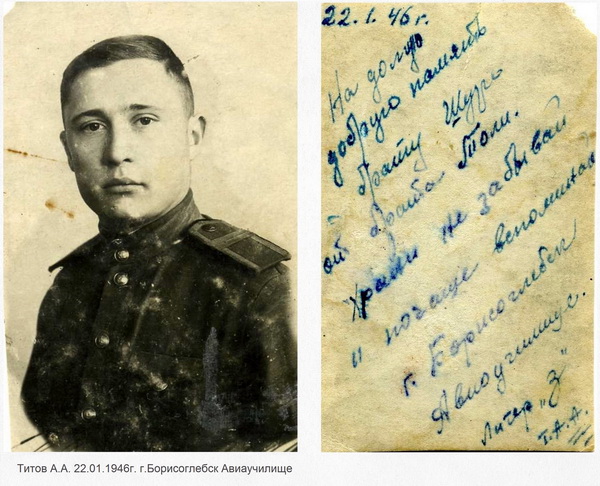 22.1.46 г.
На долгу
добрую память
брату Шуре
от брата Толи.
Храни не забывай
и почаще вспоминай
г. Борисоглебск
Авиаучилище.
Литер "З"
Т.А.А.
Титов А.А. 22.01.1946г. г.Борисоглебск Авиаучилище